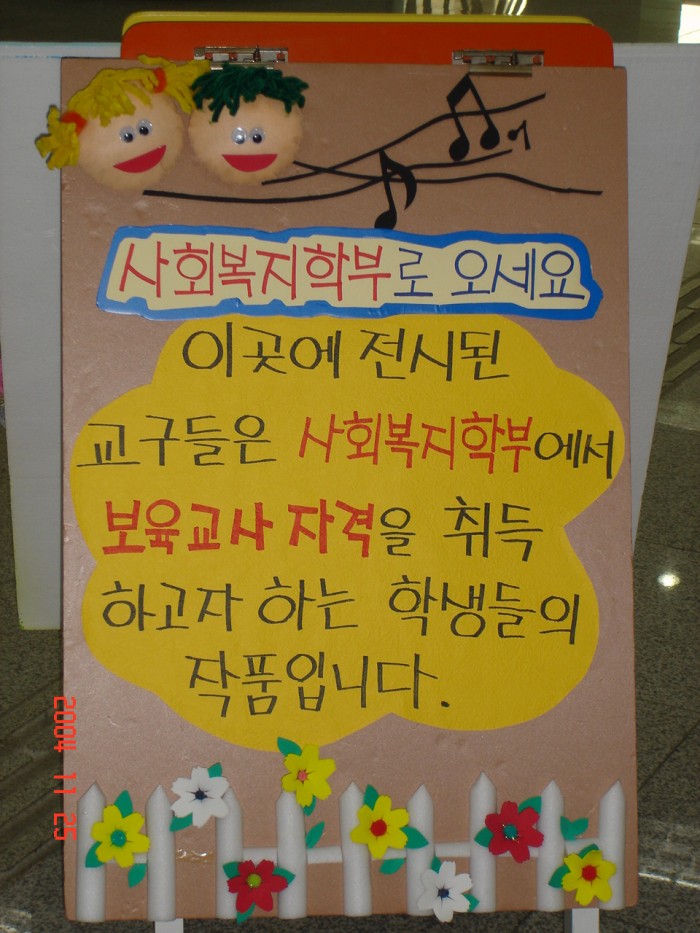 사회복지학부로 오세요
이곳에 전시된
교구들은 사회복지학부에서
보육교사 자격을 취득
하고자 하는 학생들의
작품입니다.
2004 11 25